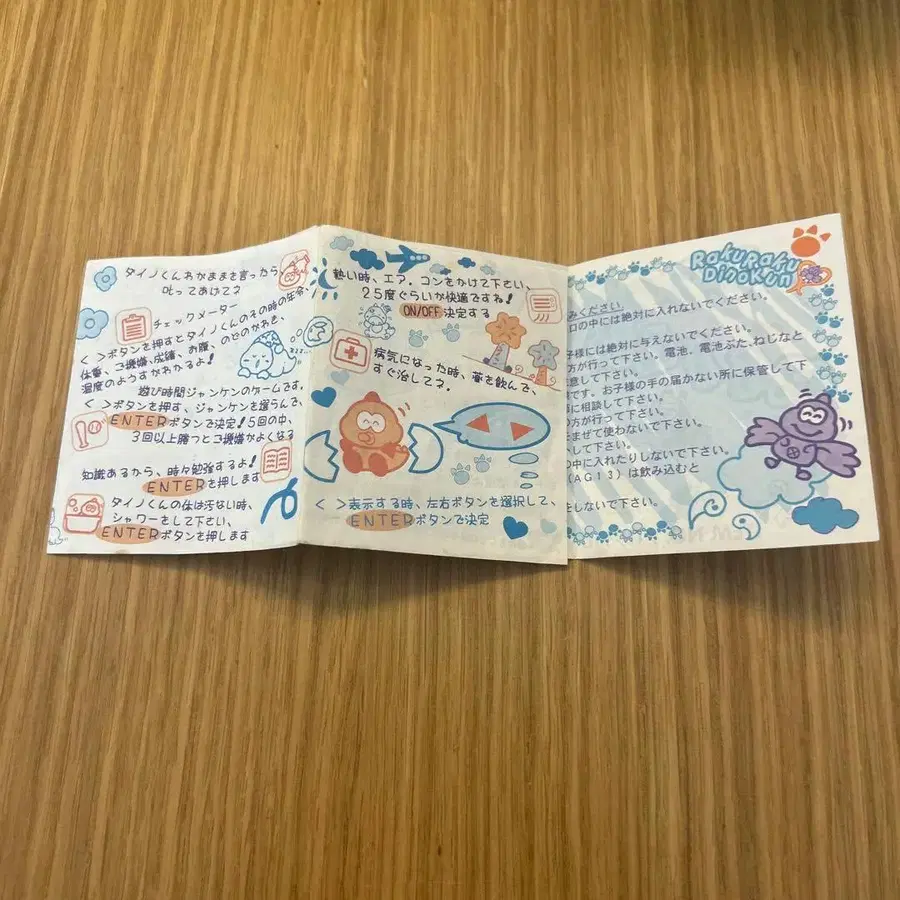 ダイノくんわがままを言ったら、
叱ってあげてネ
チェックメーター
< >ボタンを押すとダイノくんのその時の年令、
体重、ご機嫌、成績、お腹、のどのかわき、
温度のようすがわかるよ!
遊び時間ジャンケンのゲームです。
< >ボタンを押す、ジャンケンを選らんで、
ENTERボタンで決定!5回の中、
3回以上勝つとご機嫌がよくなる
知識あるから、時々勉強するよ!
ENTERを押します
ダイノくんの体は汚ない時、
シャワーをして下さい、
ENTERボタンを押します
zzz...
熱い時、エア.コンをかけて下さい、
25度ぐらいが快適ですね!
ON/OFF決定する
病気になった時、薬を飲んで、
すぐ治してネ.
< >表示する時、左右ボタンを選択して、
ENTERボタンで決定
RakuRaku
DinoKun
みください.
口の中には絶対に入れないでください。
子様には絶対に与えないでください。
方が行って下さい。電池、電池ぶた、ねじなど
意して下さい。
です。お子様の手の届かない所に保管して下
に相談して下さい。
の方が行って下さい。
まぜて使わないで下さい。
して下さい。
の中に入れたりしないで下さい。
(AG13)は飲み込むと
をしないで下さい。